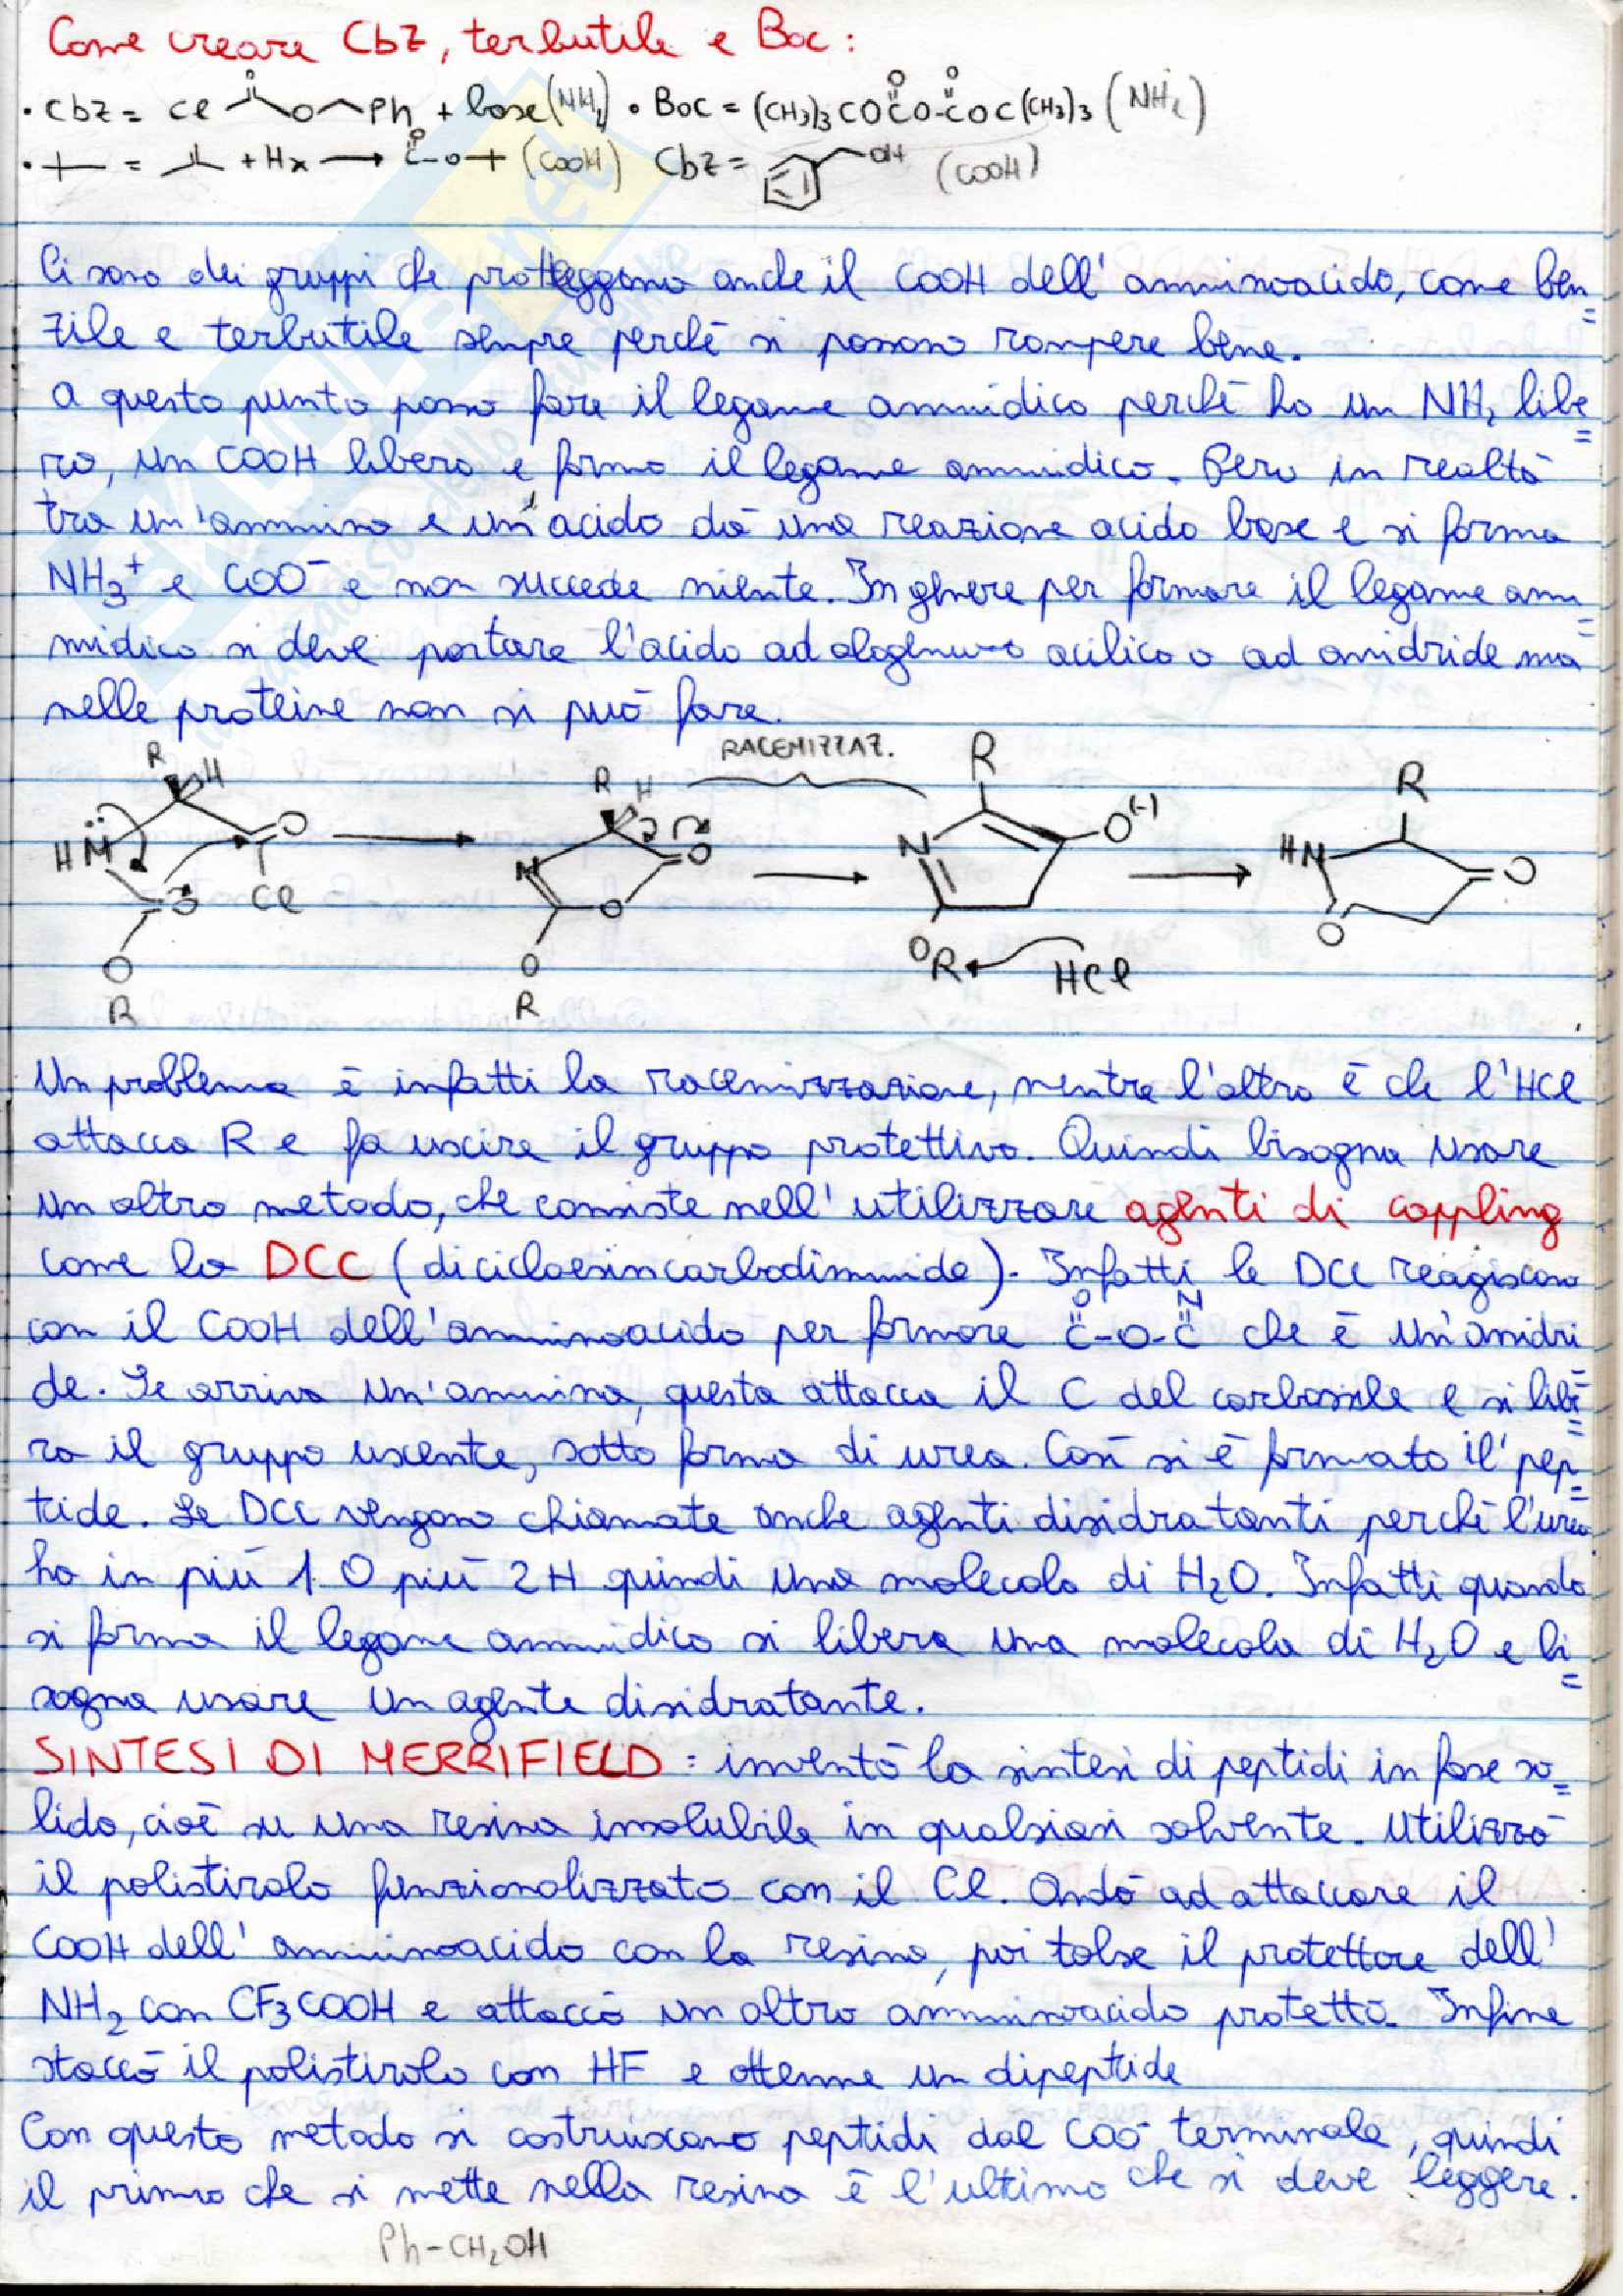 Come creare Cbz, terbutile e Boc:
• Cbz = Cl O Ph + base (NH2) • Boc = (CH3)3COCO-COC(CH3)3 (NH2)
• = + Hx → C-O (COOH) Cbz = OH (COOH)
Ci sono dei gruppi che proteggono anche il COOH dell'amminoacido, come ben=
zile e terbutile sempre perchè si possono rompere bene.
A questo punto posso fare il legame ammidico perchè ho un NH2 libe=
ro, un COOH libero e formo il legame ammidico. Pero in realtà
tra un'ammina e un acido dà una reazione acido base e si forma
NH3+ e COO- e non succede niente. In genere per formare il legame am=
midico si deve portare l'acido ad alogenuro acilico o ad anidride ma
nelle proteine non si può fare.
RACEMIZZAZ.
R H R H R R
HN O N O N O(-) HN O
O Cl O O
O O OR HCl
R R
Un problema è infatti la racemizzazione, mentre l'altro è che l'HCl
attacca R e fa uscire il gruppo protettivo. Quindi bisogna usare
un altro metodo, che consiste nell'utilizzare agenti di coppling
come la DCC (dicicloesincarbodimmide). Infatti le DCC reagiscono
O N
con il COOH dell'amminoacido per formare C-O-C che è un'anidri=
de. Se arriva un'ammina, questa attacca il C del carbossile e si libe=
ra il gruppo uscente, sotto forma di urea. Così si è formato il pep=
tide. Le DCC vengono chiamate anche agenti disidratanti perchè l'urea
ha in più 1 O più 2H quindi una molecola di H2O. Infatti quando
si forma il legame ammidico si libera una molecola di H2O e bi=
sogna usare un agente disidratante.
SINTESI DI MERRIFIELD: inventò la sintesi di peptidi in fase so=
lida, cioè su una resina insolubile in qualsiasi solvente. Utilizzò
il polistirolo funzionalizzato con il Cl. Andò ad attaccare il
COOH dell'amminoacido con la resina, poi tolse il protettore dell'
NH2 con CF3COOH e attaccò un altro amminoacido protetto. Infine
staccò il polistirolo con HF e ottenne un dipeptide
Con questo metodo si costruiscono peptidi dal COO- terminale, quindi
il primo che si mette nella resina è l'ultimo che si deve leggere.
Ph-CH2OH